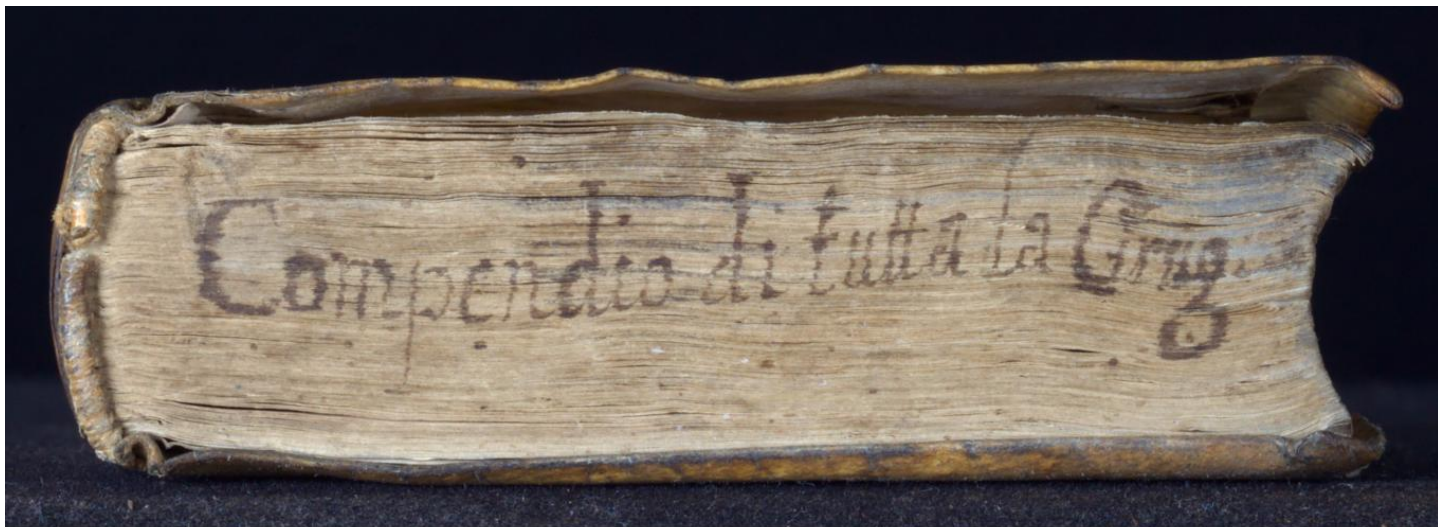 Compendio di tutta la Cirug